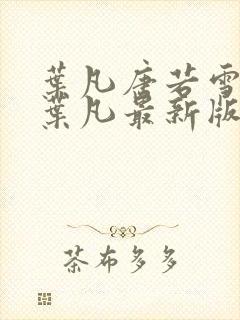 葉凡唐若雪
葉凡最新版
茶布多多